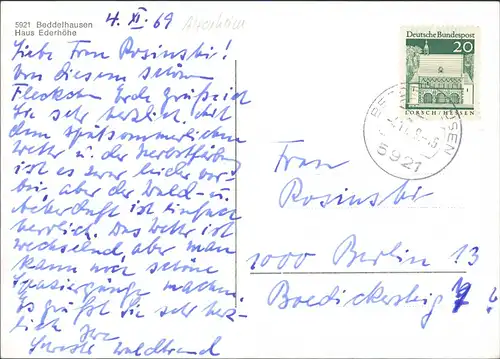 5921 Beddelhausen
Haus Ederhöhe
4. XI. 69
Altersheim
Liebe Frau Rosinski!
Von diesem schönen
Fleckchen Erde grüße ich
Sie sehr herzlich. Mit
dem spätsommerlichen
Wetter u. der Herbstfärbung
ist es zwar leider vor-
bei, aber der Wald- u.
Ackerduft ist einfach
herrlich. Das Wetter ist
wechselnd, aber man
kann noch schöne
Spaziergänge machen.
Es grüßt Sie sehr herz-
lich Ihre
Schwester Waldtraud
Deutsche Bundespost
20
LORSCH/HESSEN
5921
Frau
Rosinski
1000 Berlin 13
Boedickersteig 7